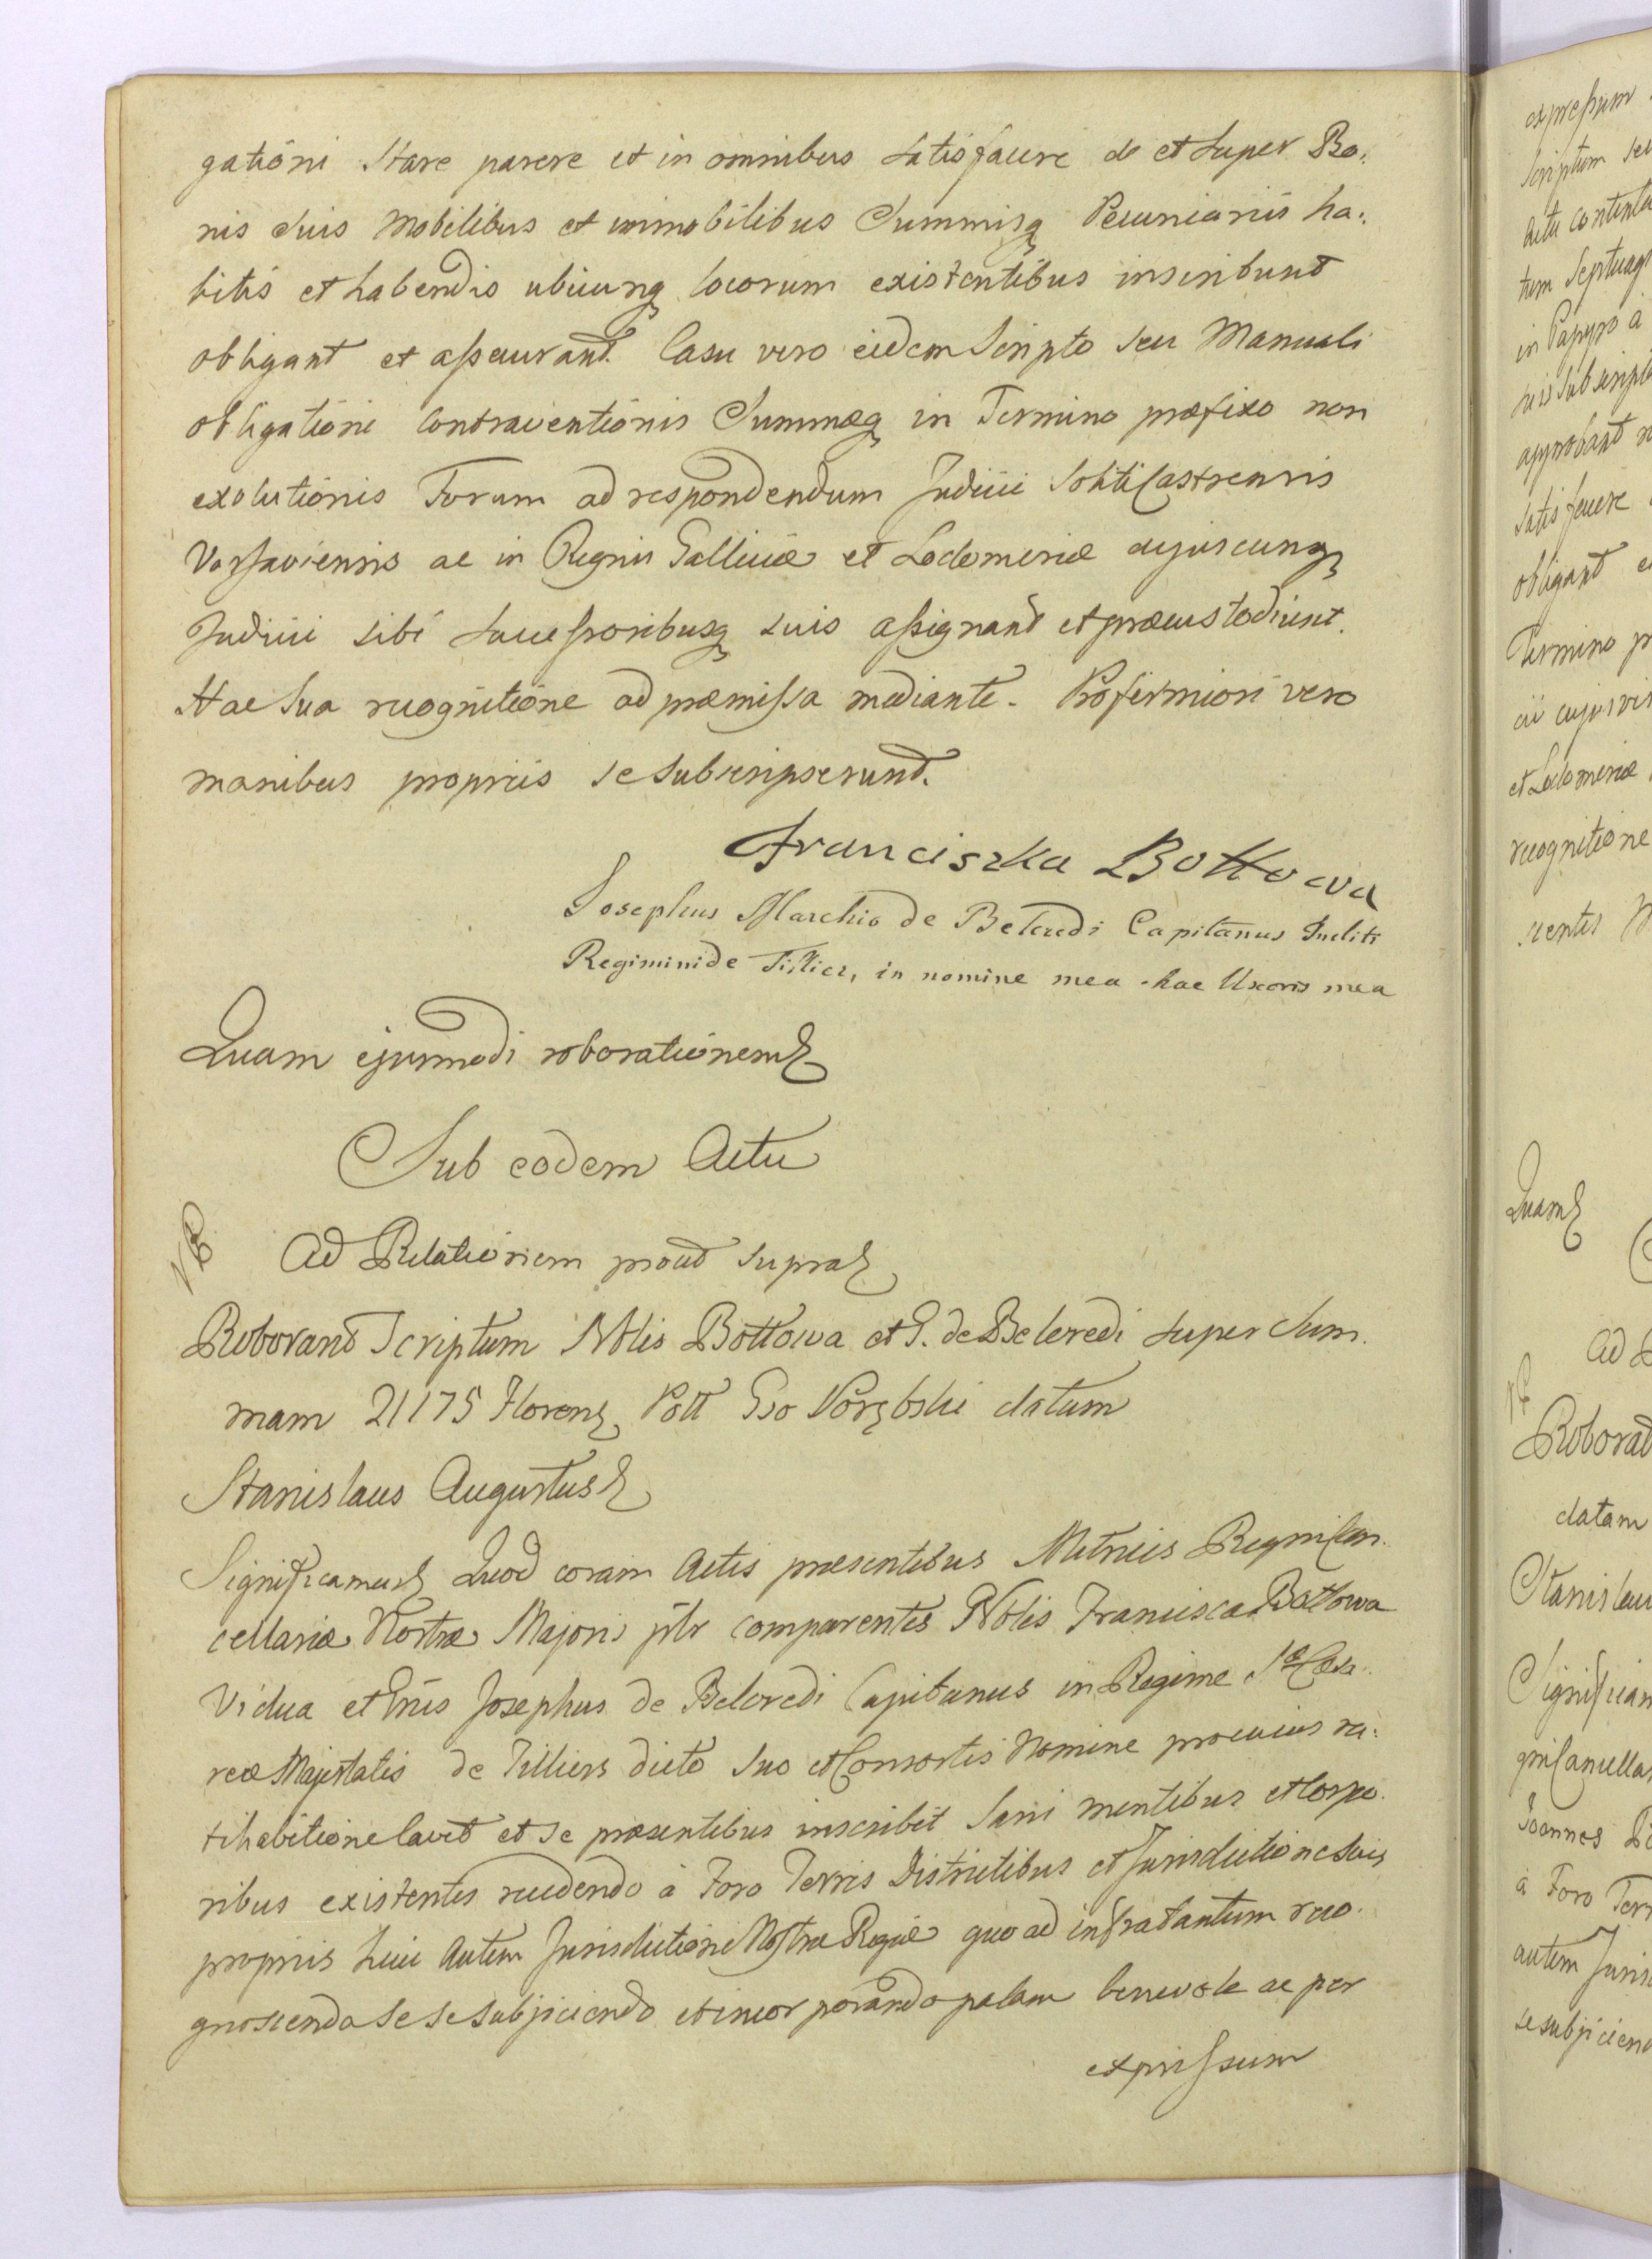 gationi Stare parere et in omnibus satisfacere de et super Bo:
nis Suis Mobilibus et immobilibus Summisq Pecuniariis ha:
bitis et habendis ubicunq locorum existentibus inscribunt
obligant et assecurant. Casu vero eidem Scripto seu Manuali
obligationi Contraventionis Summaeq in Termino praefixo non
exolutionis Forum ad respondendum Judicii Solitti Castrensis
Varsaviensis ac in Regnis Galliciae et Lodomeriae cujuscunq
Judicii sibi Successoribusq suis assignant et praecustodiunt.
Hac Sua recognitione ad praemissa mediante. Pro firmiori vero
manibus propriis se subscripserunt.
Franciszka Bottowa
Josephus Marchio de Belcredi Capitanus Incliti
Regimini de Tillier, in nomine mea hac Uxoris mea
Quam ejusmodi roborationem
Sub eodem Actu
Ad Relationem prout supra
Roborant Scriptum Nblis Bottowa et G. de Belcredi super Sum.
mam 21175 Floren Poll Gso Porębski datum
Stanislaus Augustus
Significamus Quod coram Actis praesentibus Metrices Regni Can.
cellariae Nostrae Majoris pltr comparentes Nblis Francisca Bottowa
Vidua et Gnus Josephus de Belcredi Capitanus in Regime Sae Cesa.
reae Majestatis de Tilliers dicto Suo et Consortis Nomine pro cuius ra:
tihabitione cavet et se praesentibus inscribit Sani mentibus et Corpo.
ribus existentes recedendo à Foro Terris Districtibus et Jurisdictione Suis
propriis huic autem Jurisdictioni Nostrae Regiae quo ad infra tantum reco.
gnoscenda se se subjiciendo et incorporando palam benevole ac per
expressum